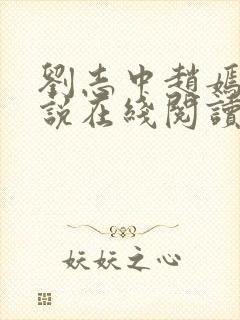 劉志中趙嫣
説在綫閱讀
妖妖之心